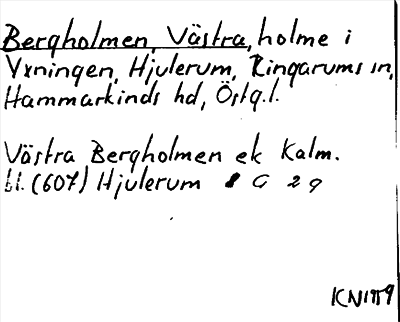 Bergholmen, Västra, holme i
Yxningen, Hjulerum, Ringarums sn,
Hammarkinds hd, Östg.l.
Västra Bergholmen ek Kalm.
bl. (607) Hjulerum 8 G 2 g